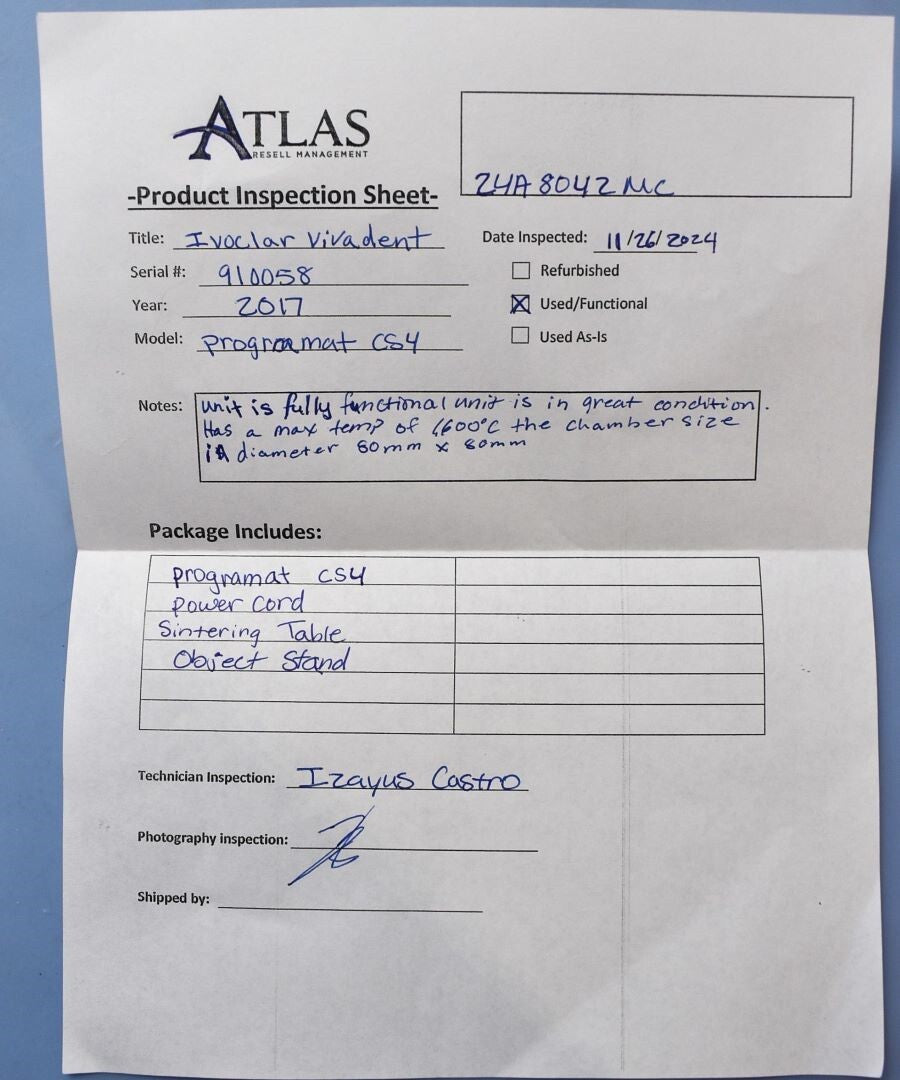 ATLAS
RESELL MANAGEMENT
24A8042MC
-Product Inspection Sheet-
Title: Ivoclar Vivadent
Date Inspected: 11/26/2024
Serial #: 910058
Refurbished
Year: 2017
Used/Functional
Model: programat CS4
Used As-Is
Notes: unit is fully functional unit is in great condition.
Has a max temp of 1,600°C the chamber size
in diameter 80mm x 80mm
Package Includes:
programat CS4
power cord
Sintering Table
Object Stand
Technician Inspection: Izayus Castro
Photography inspection:
Shipped by: